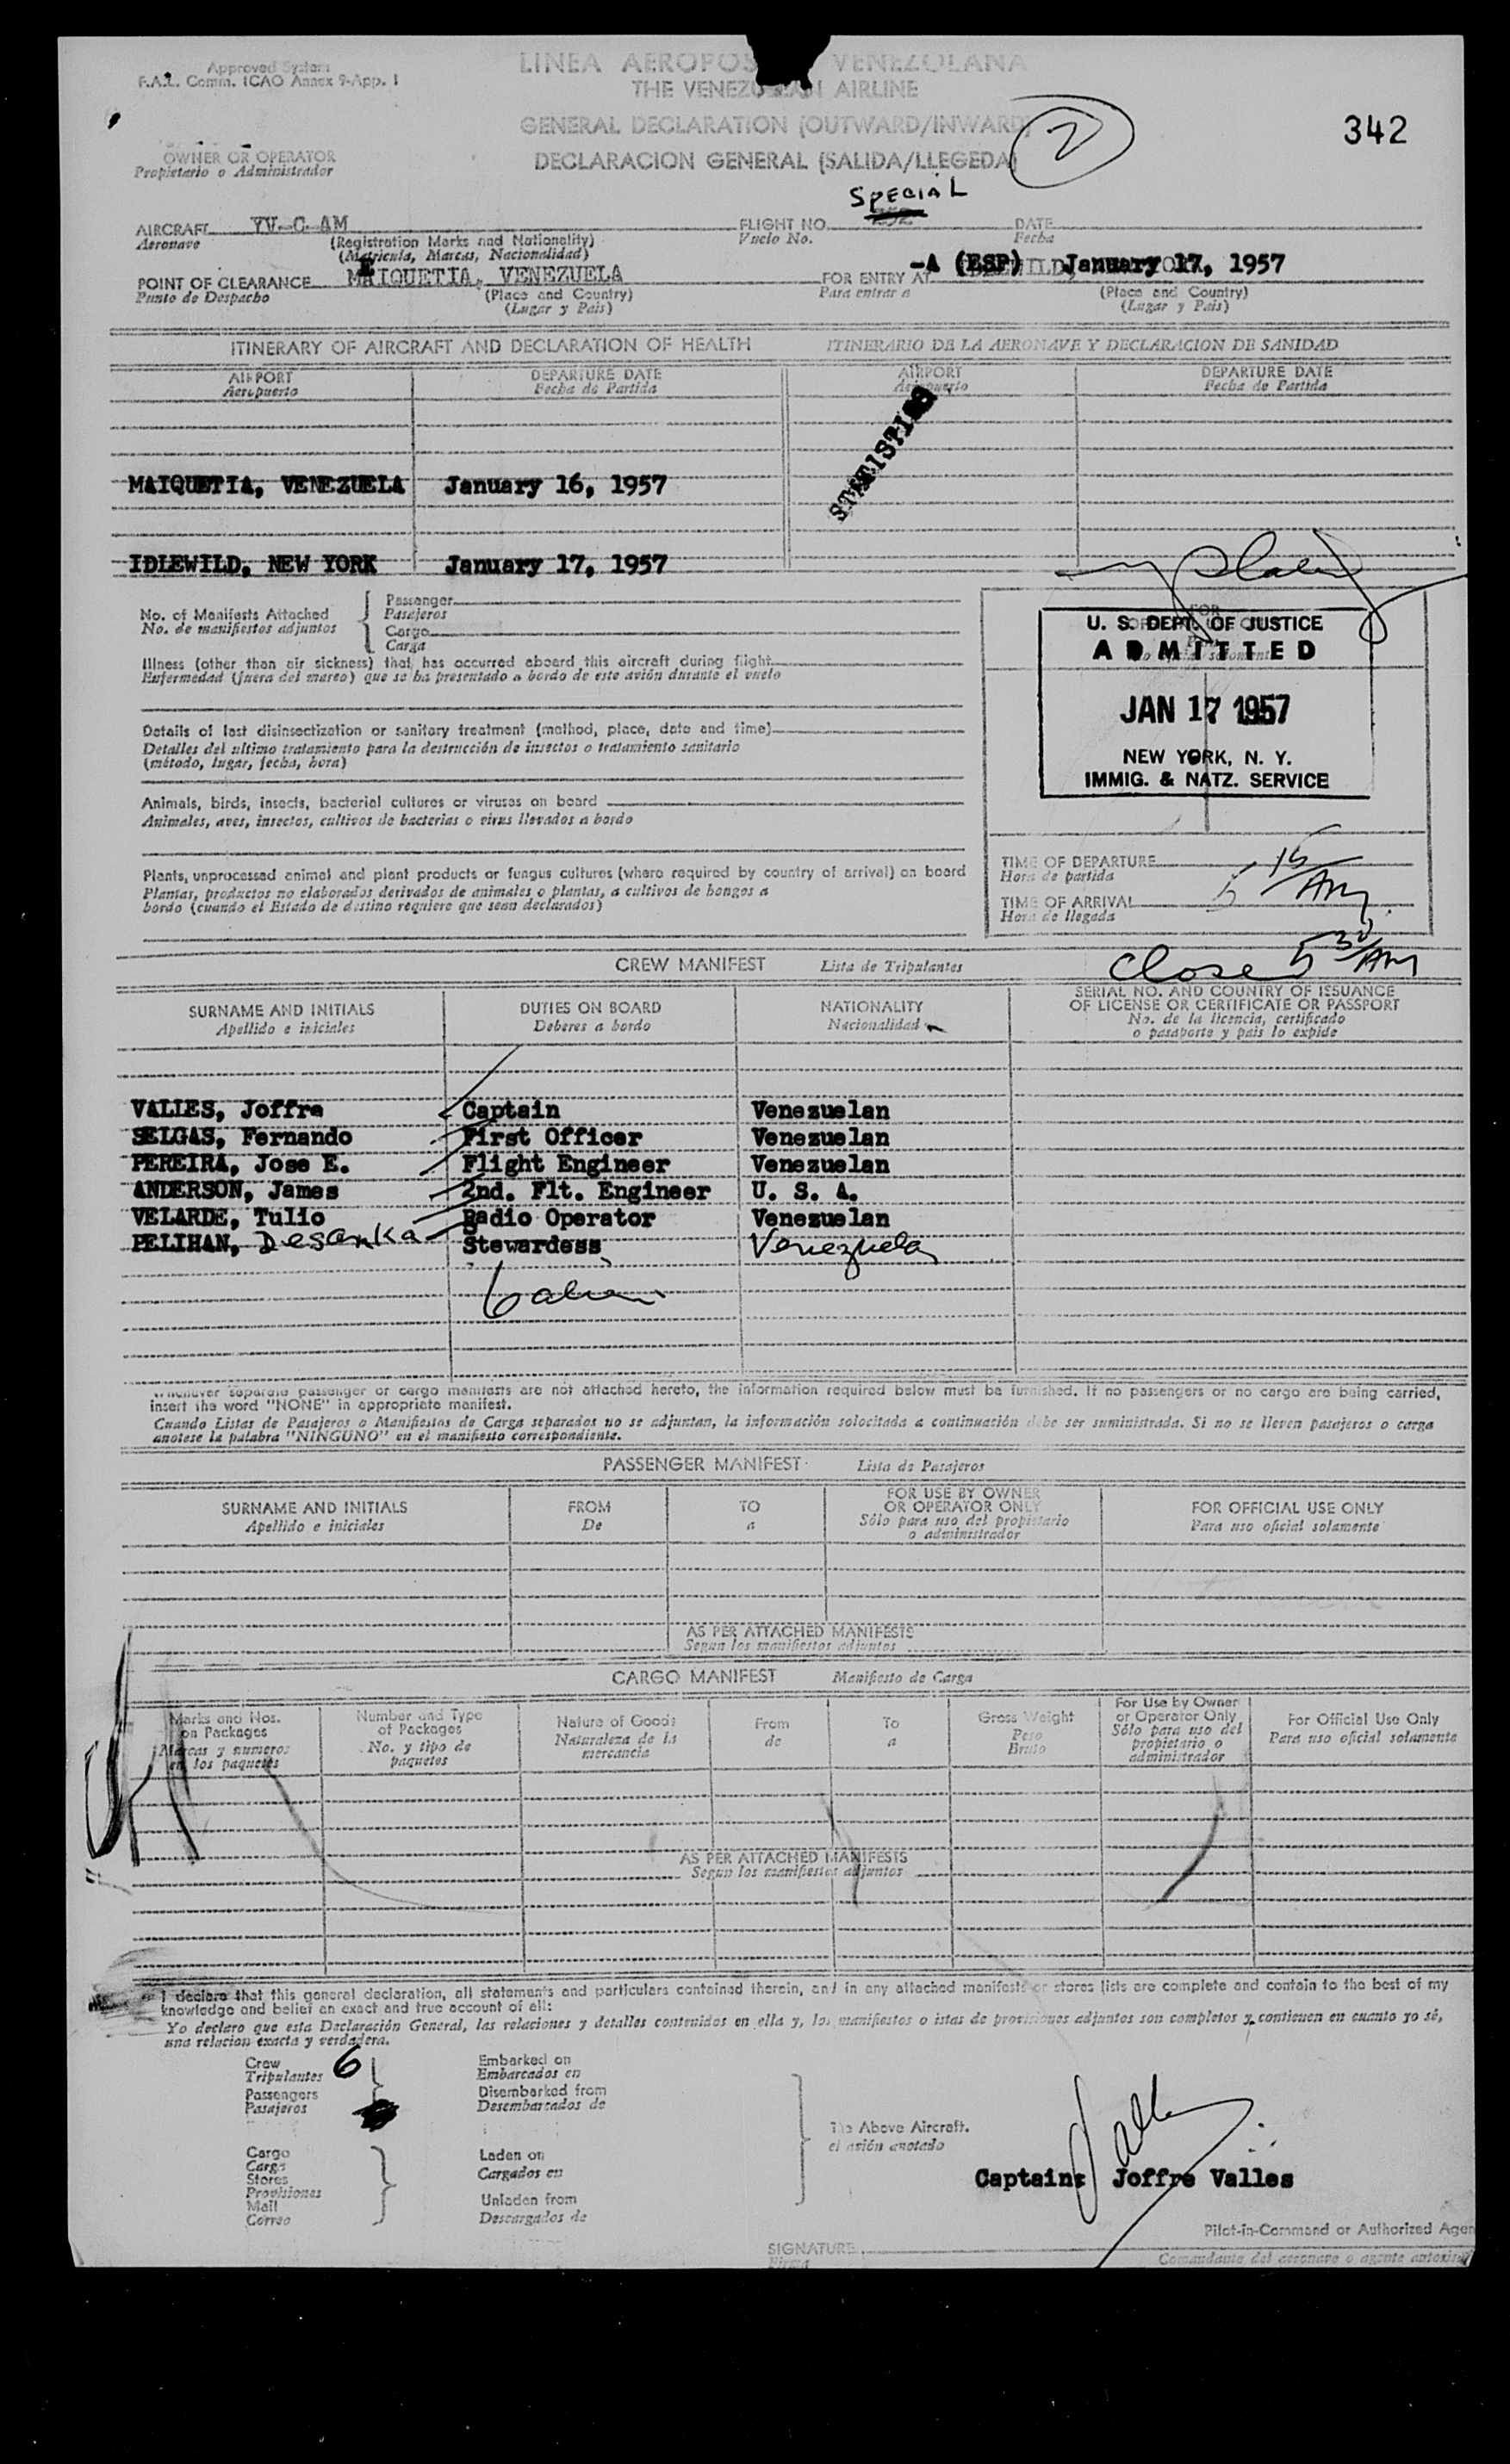 Approved System
F.A.L. Comm. ICAO Annex 9-App. 1
LINEA AEROPOS VENEZOLANA
THE VENEZUELAN AIRLINE
GENERAL DECLARATION (OUTWARD/INWARD)
DECLARACION GENERAL (SALIDA/LLEGEDA)
2
342
OWNER OR OPERATOR
Propietario o Administrador
SPECIAL
AIRCRAFT YV-C-AM FLIGHT NO. DATE
Aeronave (Registration Marks and Nationality) Vuelo No. Fecha
(Matricula, Marcas, Nacionalidad)
-A (ESP) January 17, 1957
POINT OF CLEARANCE MAIQUETIA, VENEZUELA FOR ENTRY AT
Punto de Despacho (Place and Country) Para entrar a (Place and Country)
(Lugar y Pais) (Lugar y Pais)
ITINERARY OF AIRCRAFT AND DECLARATION OF HEALTH ITINERARIO DE LA AERONAVE Y DECLARACION DE SANIDAD
AIRPORT DEPARTURE DATE AIRPORT DEPARTURE DATE
Aeropuerto Fecha de Partida Aeropuerto Fecha de Partida
MAIQUETIA, VENEZUELA January 16, 1957
IDLEWILD, NEW YORK January 17, 1957
No. of Manifests Attached
No. de manifiestos adjuntos
Passenger
Pasajeros
Cargo
Carga
Illness (other than air sickness) that has occurred aboard this aircraft during flight
Enfermedad (fuera del mareo) que se ha presentado a bordo de este avión durante el vuelo
Details of last disinsectization or sanitary treatment (method, place, date and time)
Detalles del ultimo tratamiento para la destrucción de insectos o tratamiento sanitario
(método, lugar, fecha, hora)
Animals, birds, insects, bacterial cultures or viruses on board
Animales, aves, insectos, cultivos de bacterias o virus llevados a bordo
Plants, unprocessed animal and plant products or fungus cultures (where required by country of arrival) on board
Plantas, productos no elaborados derivados de animales o plantas, a cultivos de hongos a
bordo (cuando el Estado de destino requiere que sean declarados)
U. S. DEPT. OF JUSTICE
ADMITTED
JAN 17 1957
NEW YORK, N. Y.
IMMIG. & NATZ. SERVICE
TIME OF DEPARTURE
Hora de partida
5 15/AM
TIME OF ARRIVAL
Hora de llegada
Close 5 30/AM
CREW MANIFEST Lista de Tripulantes
SURNAME AND INITIALS DUTIES ON BOARD NATIONALITY SERIAL NO. AND COUNTRY OF ISSUANCE
Apellido e iniciales Deberes a bordo Nacionalidad OF LICENSE OR CERTIFICATE OR PASSPORT
No. de la licencia, certificado
o pasaporte y pais lo expide
VALLES, Joffre Captain Venezuelan
SELGAS, Fernando First Officer Venezuelan
PEREIRA, Jose E. Flight Engineer Venezuelan
ANDERSON, James 2nd. Flt. Engineer U. S. A.
VELARDE, Tulio Radio Operator Venezuelan
PELIHAN, Desanka Stewardess Venezuela
Whenever separate passenger or cargo manifests are not attached hereto, the information required below must be furnished. If no passengers or no cargo are being carried,
insert the word "NONE" in appropriate manifest.
Cuando Listas de Pasajeros o Manifiestos de Carga separados no se adjuntan, la información solocitada a continuación debe ser suministrada. Si no se lleven pasajeros o carga
anotese la palabra "NINGUNO" en el manifiesto correspondiente.
PASSENGER MANIFEST Lista de Pasajeros
SURNAME AND INITIALS FROM TO FOR USE BY OWNER FOR OFFICIAL USE ONLY
Apellido e iniciales De a OR OPERATOR ONLY Para uso oficial solamente
Sólo para uso del propietario
o administrador
AS PER ATTACHED MANIFESTS
Segun los manifiestos adjuntos
CARGO MANIFEST Manifiesto de Carga
Marks and Nos. on Packages
Marcas y numeros en los paquetes
Number and Type of Packages
No. y tipo de paquetes
Nature of Goods
Naturaleza de la mercancia
From
de
To
a
Gross Weight
Peso Bruto
For Use by Owner or Operator Only
Sólo para uso del propietario o administrador
For Official Use Only
Para uso oficial solamente
AS PER ATTACHED MANIFESTS
Segun los manifiestos adjuntos
I declare that this general declaration, all statements and particulars contained therein, and in any attached manifests or stores lists are complete and contain to the best of my
knowledge and belief an exact and true account of all:
Yo declaro que esta Declaración General, las relaciones y detalles contenidos en ella y, los manifiestos o istas de provisiones adjuntos son completos y contienen en cuanto yo sé,
una relacion exacta y verdadera.
Crew 6
Tripulantes
Passengers
Pasajeros
Embarked on
Embarcados en
Disembarked from
Desembarcados de
Cargo
Carga
Stores
Provisiones
Mail
Correo
Laden on
Cargados en
Unladen from
Descargados de
The Above Aircraft.
el avión anotado
Captain: Joffre Valles
Pilot-in-Command or Authorized Agen
SIGNATURE
Firma
Comandante del aeronave o agente autoriz